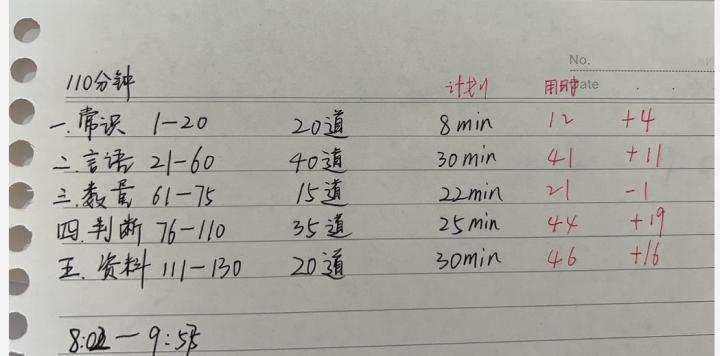 No.
Date . .
110分钟 计划 用时
一.常识 1-20 20道 8min 12 +4
二.言语 21-60 40道 30min 41 +11
三.数量 61-75 15道 22min 21 -1
四.判断 76-110 35道 25min 44 +19
五.资料 111-130 20道 30min 46 +16
8:02-9:55